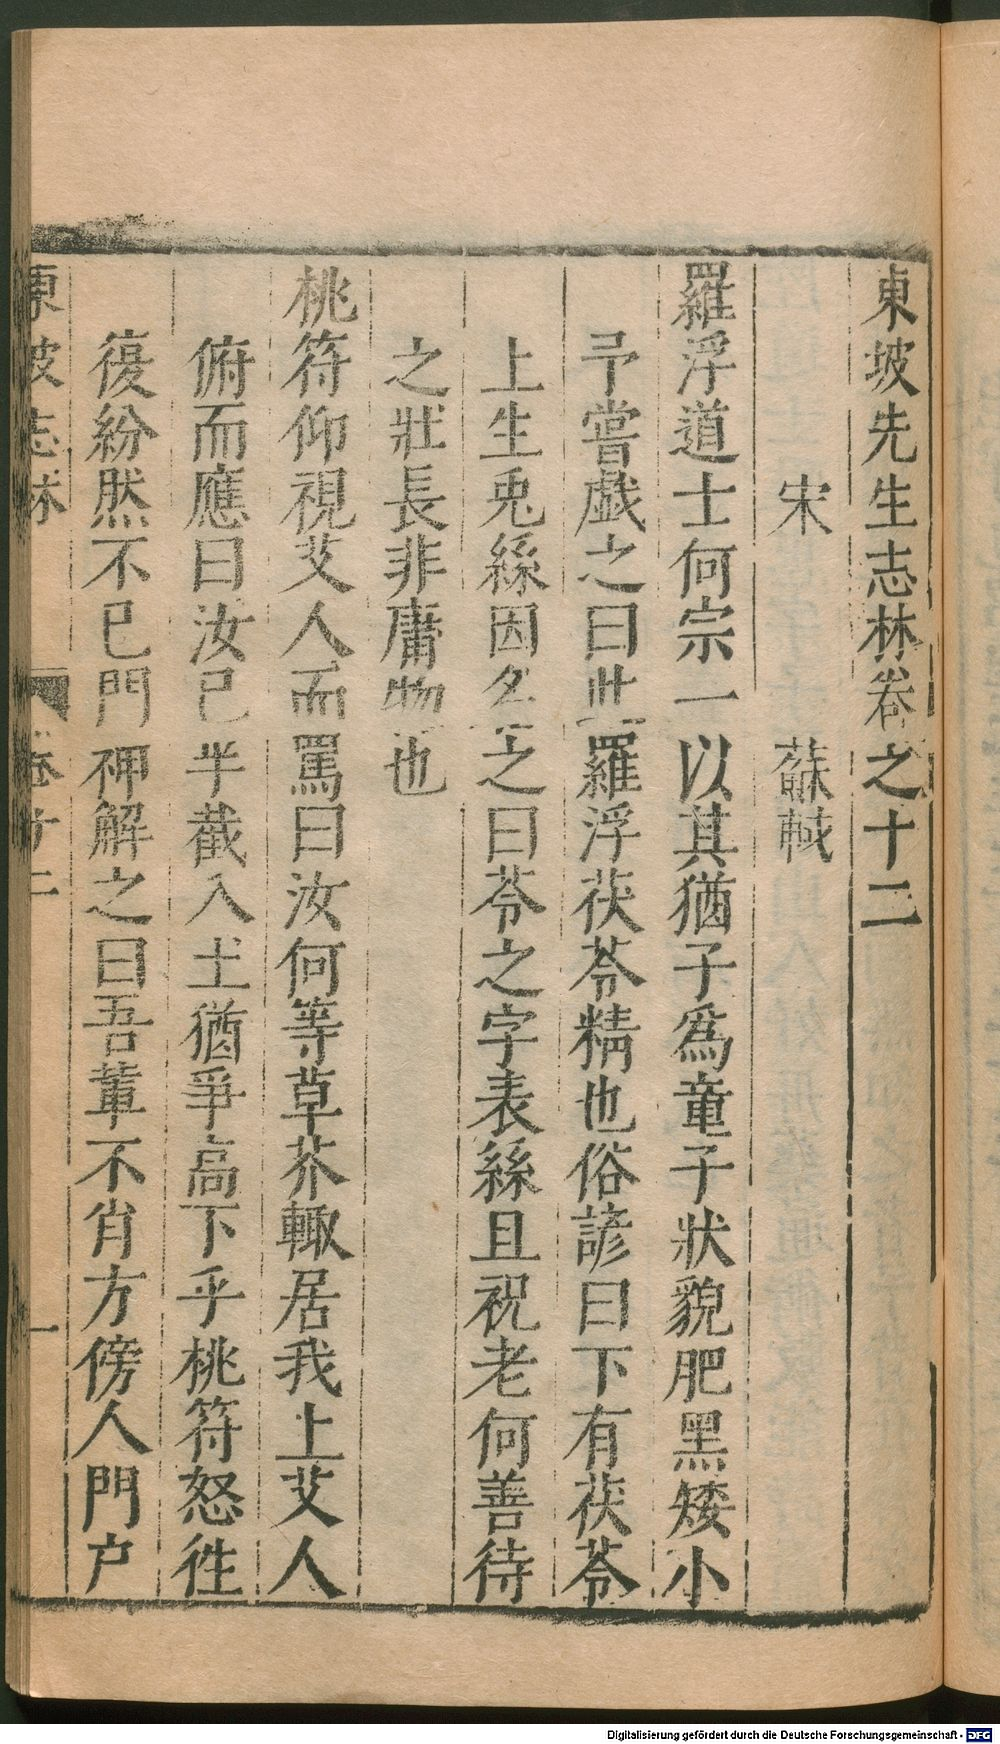 東坡先生志林卷之十二
宋 蘇軾
羅浮道士何宗一以其猶子爲童子狀貌肥黑矮小
予嘗戯之曰此羅浮茯苓精也俗諺曰下有茯苓
上生兎絲因名之曰苓之字表絲且祝老何善待
之壯長非庸物也
桃符仰視艾人而罵曰汝何等草芥輙居我上艾人
俯而應曰汝已半截入土猶爭高下乎桃符怒徃
復紛然不已門神解之曰吾軰不肖方傍人門户
東坡志林 卷十二 一
Digitalisierung gefördert durch die Deutsche Forschungsgemeinschaft - DFG